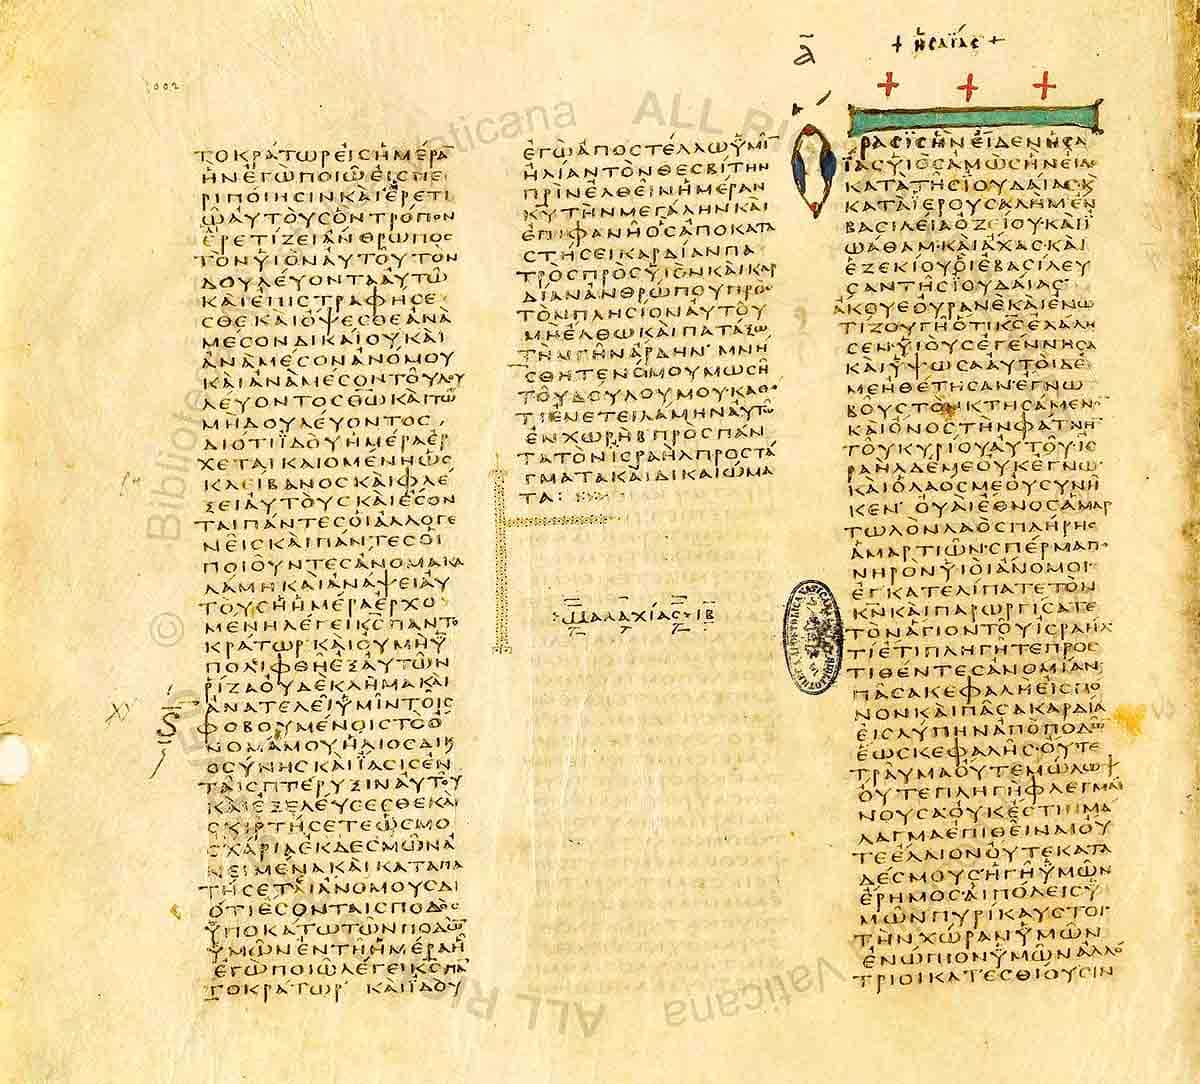 + ΗϹΑΪΑϹ +
Α
ΤΟΚΡΑΤΩΡΕΙϹΗΜΕΡΑ
ΗΝΕΓΩΠΟΙΩΕΙϹΠΕ
ΡΙΠΟΙΗϹΙΝΚΑΙΕΡΕΤΙ
ΩΑΥΤΟΥϹΟΝΤΡΟΠΟΝ
ΕΡΕΤΙΖΕΙΑΝΘΡΩΠΟϹ
ΤΟΝΥΙΟΝΑΥΤΟΥΤΟΝ
ΔΟΥΛΕΥΟΝΤΑΑΥΤΩ
ΚΑΙΕΠΙϹΤΡΑΦΗϹΕ
ϹΘΕΚΑΙΟΨΕϹΘΕΑΝΑ
ΜΕϹΟΝΔΙΚΑΙΟΥΚΑΙ
ΑΝΑΜΕϹΟΝΑΝΟΜΟΥ
ΚΑΙΑΝΑΜΕϹΟΝΤΟΥΔΟΥ
ΛΕΥΟΝΤΟϹΘΩΚΑΙΤΟΥ
ΜΗΔΟΥΛΕΥΟΝΤΟϹ
ΔΙΟΤΙΪΔΟΥΗΜΕΡΑΕΡ
ΧΕΤΑΙΚΑΙΟΜΕΝΗΩϹ
ΚΛΕΙΒΑΝΟϹΚΑΙΦΛΕ
ΞΕΙΑΥΤΟΥϹΚΑΙΕϹΟΝ
ΤΑΙΠΑΝΤΕϹΟΙΑΛΛΟΓΕ
ΝΕΙϹΚΑΙΠΑΝΤΕϹΟΙ
ΠΟΙΟΥΝΤΕϹΑΝΟΜΑΚΑ
ΛΑΜΗΚΑΙΑΝΑΨΕΙΑΥ
ΤΟΥϹΗΗΜΕΡΑΕΡΧΟ
ΜΕΝΗΛΕΓΕΙΚϹΠΑΝΤΟ
ΚΡΑΤΩΡ·ΚΑΙΟΥΜΗΥ
ΠΟΛΙΦΘΗΕΞΑΥΤΩΝ
ΡΙΖΑΟΥΔΕΚΛΗΜΑΚΑΙ
ΑΝΑΤΕΛΕΙΥΜΙΝΤΟΙϹ
ΦΟΒΟΥΜΕΝΟΙϹΤΟΟ
ΝΟΜΑΜΟΥΗΛΙΟϹΔΙΚ
ΟϹΥΝΗϹΚΑΙΪΑϹΙϹΕΝ
ΤΑΙϹΠΤΕΡΥΞΙΝΑΥΤΟΥ
ΚΑΙΕΞΕΛΕΥϹΕϹΘΕΚΑΙ
ϹΚΙΡΤΗϹΕΤΕΩϹΜΟ
ϹΧΑΡΙΑΕΚΔΕϹΜΩΝΑ
ΝΕΙΜΕΝΑΚΑΙΚΑΤΑΠΑ
ΤΗϹΕΤΑΙΑΝΟΜΟΥϹΔΙ
ΟΤΙΕϹΟΝΤΑΙϹΠΟΔΟϹ
ΥΠΟΚΑΤΩΤΩΝΠΟΔΩ
ΥΜΩΝΕΝΤΗΗΜΕΡΑΗ
ΕΓΩΠΟΙΩΛΕΓΕΙΚϹΠΑ
ΤΟΚΡΑΤΩΡ ΚΑΙΪΔΟΥ
ΕΓΩΑΠΟϹΤΕΛΛΩΥΜΙ
ΗΛΙΑΝΤΟΝΘΕϹΒΙΤΗΝ
ΠΡΙΝΕΛΘΕΙΝΗΜΕΡΑΝ
ΚΥΤΗΝΜΕΓΑΛΗΝΚΑΙ
ΕΠΙΦΑΝΗΟϹΑΠΟΚΑΤΑ
ϹΤΗϹΕΙΚΑΡΔΙΑΝΠΑ
ΤΡΟϹΠΡΟϹΥΙΟΝΚΑΙΚΑΡ
ΔΙΑΝΑΝΘΡΩΠΟΥΠΡΟϹ
ΤΟΝΠΛΗϹΙΟΝΑΥΤΟΥ
ΜΗΕΛΘΩΚΑΙΠΑΤΑΞΩ
ΤΗΝΓΗΝΑΡΔΗΝ· ΜΝΗ
ϹΘΗΤΕΝΟΜΟΥΜΩϹΗ
ΤΟΥΔΟΥΛΟΥΜΟΥ·ΚΑΘΟ
ΤΙΕΝΕΤΕΙΛΑΜΗΝΑΥΤΩ
ΕΝΧΩΡΗΒΠΡΟϹΠΑΝ
ΤΑΤΟΝΙϹΡΑΗΛΠΡΟϹΤΑ
ΓΜΑΤΑΚΑΙΔΙΚΑΙΩΜΑ
ΤΑ:
·ΜΑΛΑΧΙΑϹ·ΙΒ
Ο
ΡΑϹΙϹΗΝΕΙΔΕΝΗϹΑ
ΪΑϹΥΙΟϹΑΜΩϹΗΝΕΙΔΕ
ΚΑΤΑΤΗϹΙΟΥΔΑΙΑϹΚ
ΚΑΤΑΪΕΡΟΥϹΑΛΗΜΕΝ
ΒΑϹΙΛΕΙΑΟΖΕΙΟΥ·ΚΑΙΪ
ΩΑΘΑΜ·ΚΑΙΑΧΑΖ·ΚΑΙ
ΕΖΕΚΙΟΥΟΙΕΒΑϹΙΛΕΥ
ϹΑΝΤΗϹΙΟΥΔΑΙΑϹ
ΑΚΟΥΕΟΥΡΑΝΕΚΑΙΕΝΩ
ΤΙΖΟΥΓΗΟΤΙΚϹΕΛΑΛΗ
ϹΕΝ·ΥΙΟΥϹΕΓΕΝΝΗϹΑ
ΚΑΙΥΨΩϹΑΑΥΤΟΙΔΕ
ΜΕΗΘΕΤΗϹΑΝ·ΕΓΝΩ
ΒΟΥϹΤΟΝΚΤΗϹΑΜΕΝ
ΚΑΙΟΝΟϹΤΗΝΦΑΤΝΗ
ΤΟΥΚΥΡΙΟΥΑΥΤΟΥ·ΙϹ
ΡΑΗΛΔΕΜΕΟΥΚΕΓΝΩ
ΚΑΙΟΛΑΟϹΜΕΟΥϹΥΝΗ
ΚΕΝ· ΟΥΑΙΕΘΝΟϹΑΜΑΡ
ΤΩΛΟΝΛΑΟϹΠΛΗΡΗϹ
ΑΜΑΡΤΙΩΝ·ϹΠΕΡΜΑΠΟ
ΝΗΡΟΝΥΙΟΙΑΝΟΜΟΙ·
ΕΓΚΑΤΕΛΙΠΑΤΕΤΟΝ
ΚΝΚΑΙΠΑΡΩΡΓΙϹΑΤΕ
ΤΟΝΑΓΙΟΝΤΟΥΙϹΡΑΗΛ
ΤΙΕΤΙΠΛΗΓΗΤΕΠΡΟϹ
ΤΙΘΕΝΤΕϹΑΝΟΜΙΑΝ;
ΠΑϹΑΚΕΦΑΛΗΕΙϹΠΟ
ΝΟΝΚΑΙΠΑϹΑΚΑΡΔΙΑ
ΕΙϹΛΥΠΗΝΑΠΟΠΟΔΩ
ΕΩϹΚΕΦΑΛΗϹ·ΟΥΤΕ
ΤΡΑΥΜΑΟΥΤΕΜΩΛΩΨ
ΟΥΤΕΠΛΗΓΗΦΛΕΓΜΑΙ
ΝΟΥϹΑ·ΟΥΚΕϹΤΙΝΜΑ
ΛΑΓΜΑΕΠΙΘΕΙΝΑΙΟΥ
ΤΕΕΛΑΙΟΝΟΥΤΕΚΑΤΑ
ΔΕϹΜΟΥϹ·ΗΓΗΥΜΩΝ
ΕΡΗΜΟϹ·ΑΙΠΟΛΕΙϹΥ
ΜΩΝΠΥΡΙΚΑΥϹΤΟΙ
ΤΗΝΧΩΡΑΝΥΜΩΝ
ΕΝΩΠΙΟΝΥΜΩΝΑΛΛΟ
ΤΡΙΟΙΚΑΤΕϹΘΙΟΥϹΙΝ